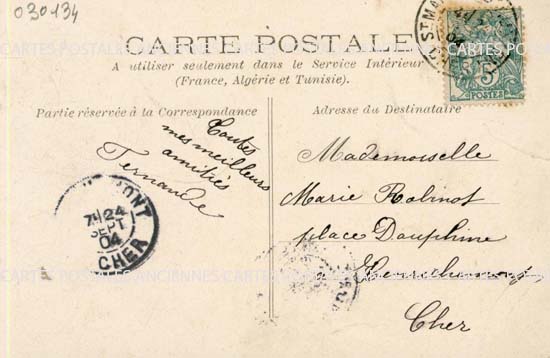 030134
CARTE POSTALE
A utiliser seulement dans le Service Intérieur
(France, Algérie et Tunisie).
Partie réservée à la Correspondance
Toutes
mes meilleurs
amitiés
Fernande
7H 24
SEPT
04
CHER
Adresse du Destinataire
Mademoiselle
Marie Robinot
place Dauphine
à Henrichemont
Cher
ST MA
5
POSTES
CARTES POSTALES ANCIENNES